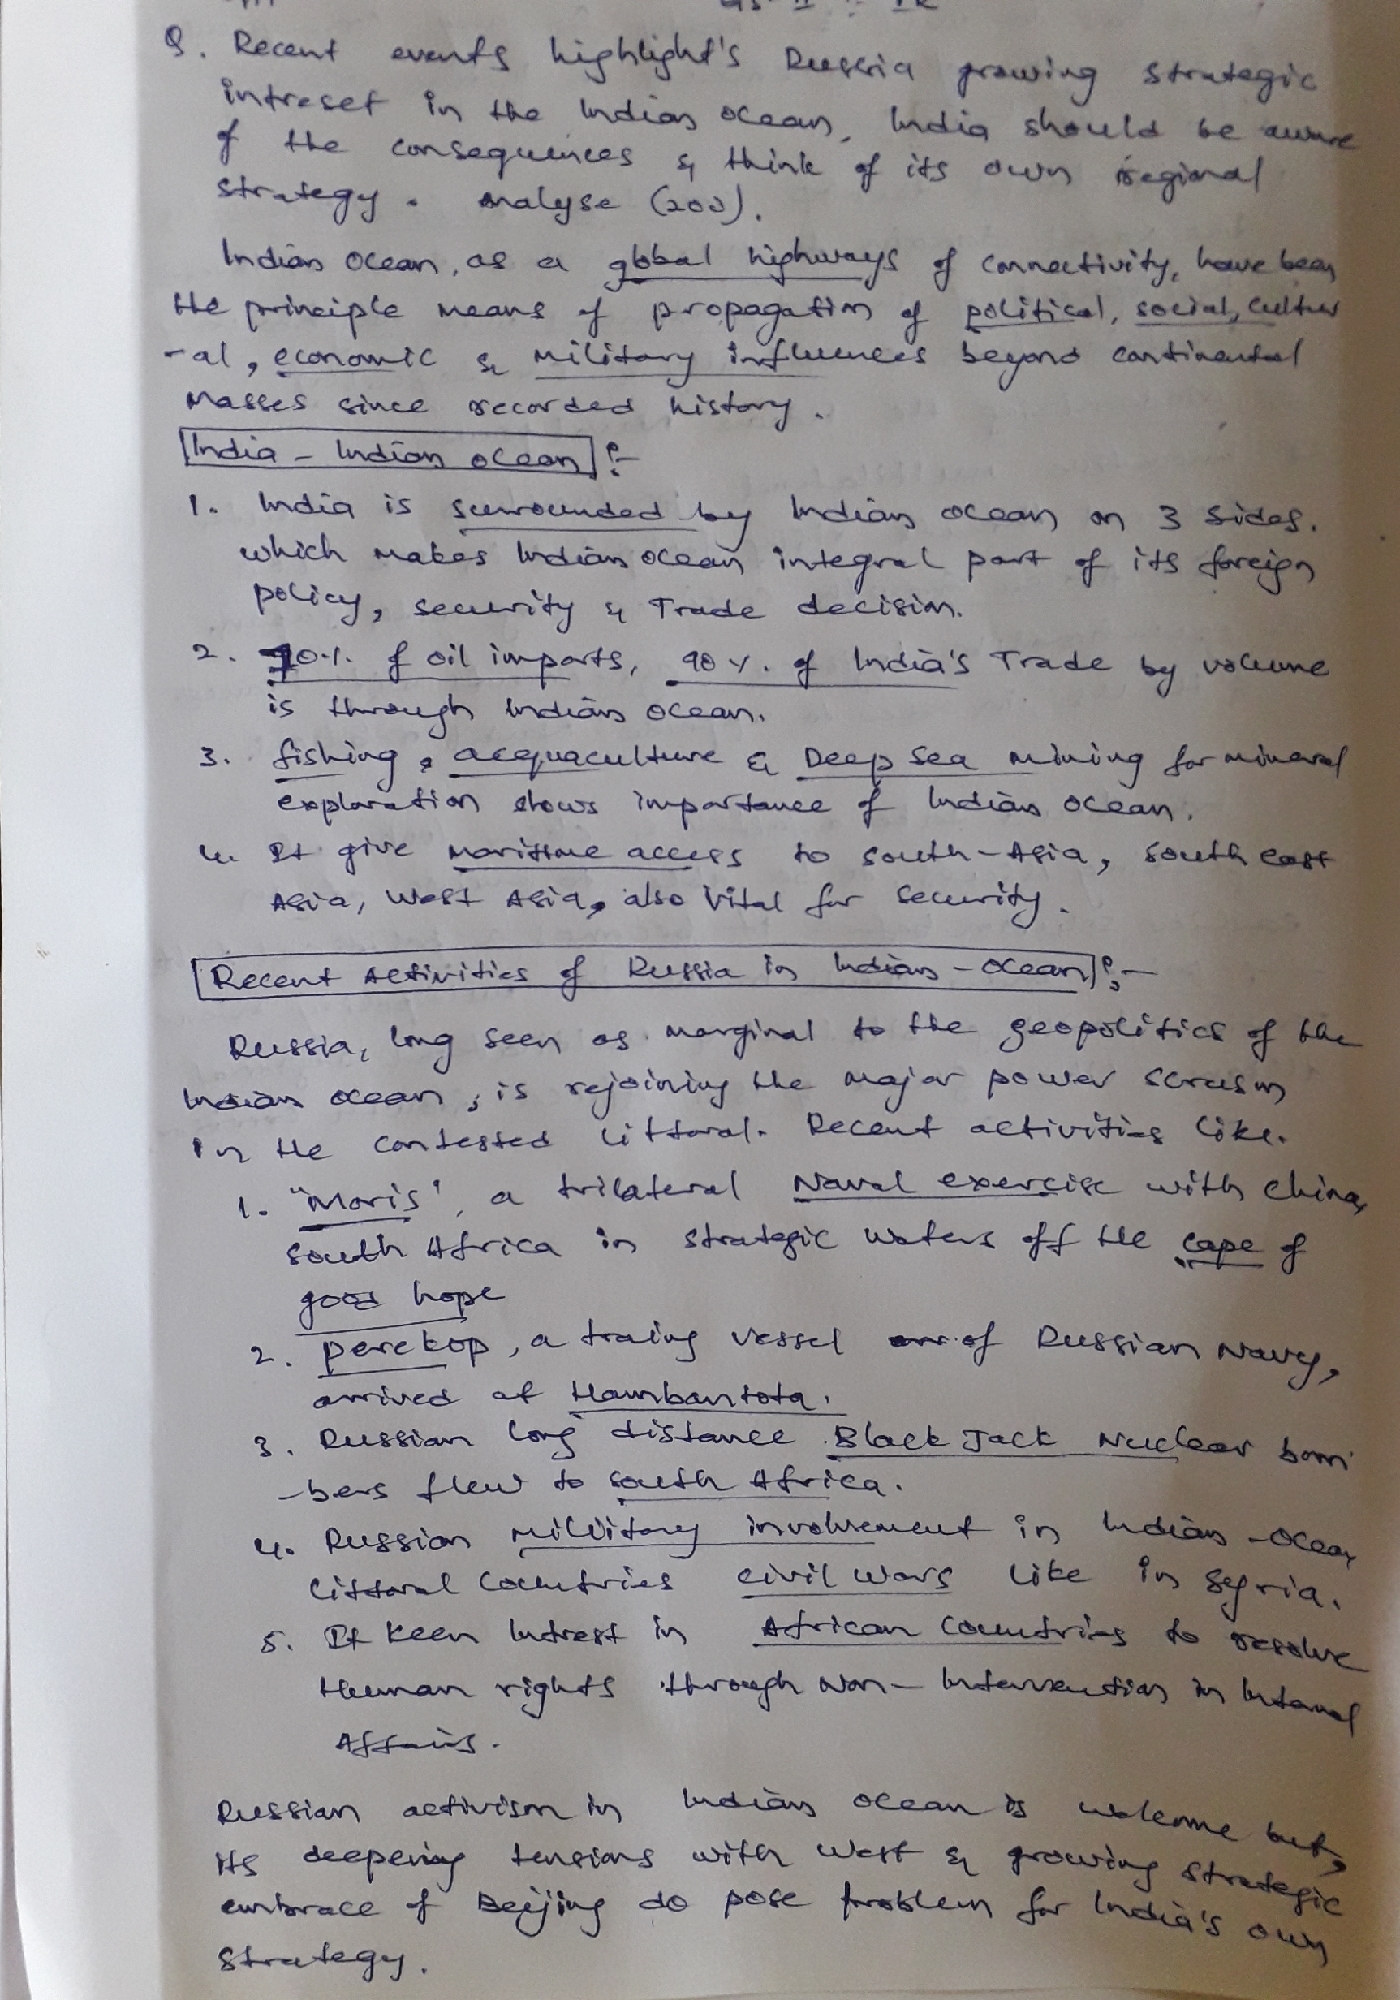 Q. Recent events highlight's Russia growing strategic
intreset in the Indian ocean, India should be aware
of the consequences & think of its own regional
strategy. Analyse (200).
Indian Ocean, as a global highways of connectivity, have been
the principle means of propagation of political, social, cultur
-al, economic & military influences beyond continental
masses since recorded history.
India - Indian ocean :-
1. India is surrounded by Indian ocean on 3 sides.
which makes Indian ocean integral part of its foreign
policy, security & Trade decision.
2. 70%. of oil imports, 90%. of India's Trade by volume
is through Indian ocean.
3. fishing, acquaculture & Deep sea mining for mineral
exploration shows importance of Indian ocean.
4. It give maritime access to south-Asia, south east
Asia, West Asia, also vital for security.
Recent Activities of Russia in Indian-ocean :-
Russia, long seen as marginal to the geopolitics of the
Indian ocean, is rejoining the major power scrusm
in the contested littoral. Recent activities like.
1. "Moris', a trilateral Naval exercise with china,
south Africa in strategic waters off the cape of
good hope
2. perekop, a traing vessel of Russian Navy,
arrived at Hambantota.
3. Russian long distance Black Jack Nuclear bom
-bers flew to south Africa.
4. Russian military involvement in Indian-ocean
littoral countries civil wars like in syria.
5. It keen Intrest in African countries to resolve
Human rights through Non-Intervention in Internal
Affairs.
Russian activism in Indian ocean is welcome but,
its deepening tensions with west & growing strategic
embrace of Beijing do pose problem for India's own
strategy.